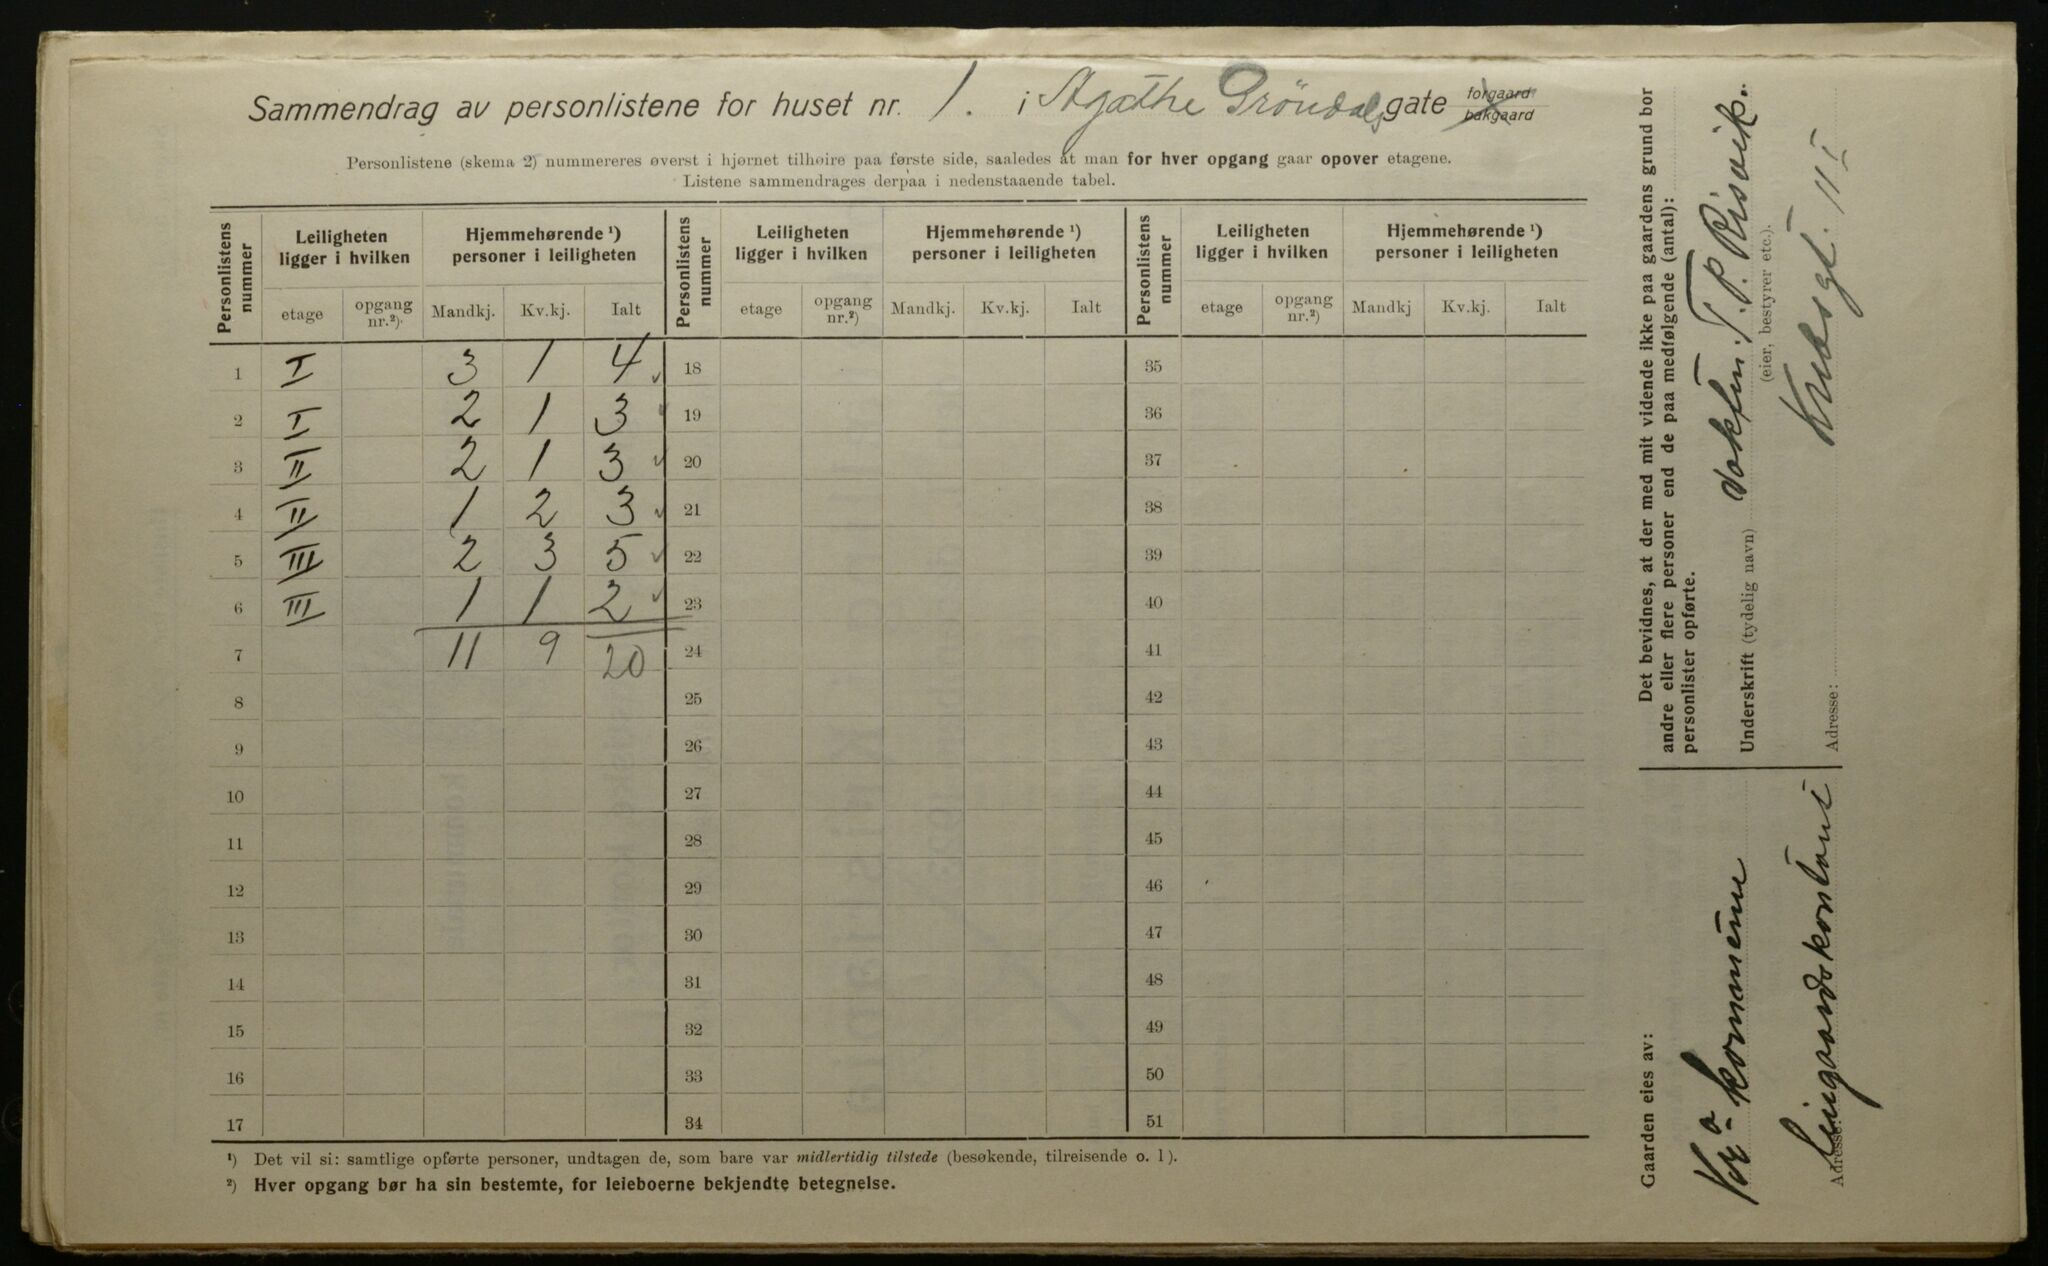 Sammendrag av personlistene for huset nr. 1. i Agathe Gröndals gate forgaard bakgaard
Personlistene (skema 2) nummereres øverst i hjørnet tilhøire paa første side, saaledes at man for hver opgang gaar opover etagene.
Listene sammendrages derpaa i nedenstaaende tabel.
Personlistens nummer | Leiligheten ligger i hvilken | Hjemmehørende ¹) personer i leiligheten | Personlistens nummer | Leiligheten ligger i hvilken | Hjemmehørende ¹) personer i leiligheten | Personlistens nummer | Leiligheten ligger i hvilken | Hjemmehørende ¹) personer i leiligheten
etage | opgang nr.²). | Mandkj. | Kv.kj. | Ialt | etage | opgang nr.²) | Mandkj. | Kv.kj. | Ialt | etage | opgang nr.²) | Mandkj | Kv.kj. | Ialt
1 I 3 1 4 18 35
2 I 2 1 3 19 36
3 II 2 1 3 20 37
4 II 1 2 3 21 38
5 III 2 3 5 22 39
6 III 1 1 2 23 40
7 11 9 20 24 41
8 25 42
9 26 43
10 27 44
11 28 45
12 29 46
13 30 47
14 31 48
15 32 49
16 33 50
17 34 51
¹) Det vil si: samtlige opførte personer, undtagen de, som bare var midlertidig tilstede (besøkende, tilreisende o. l).
²) Hver opgang bør ha sin bestemte, for leieboerne bekjendte betegnelse.
Det bevidnes, at der med mit vidende ikke paa gaardens grund bor
andre eller flere personer end de paa medfølgende (antal):
personlister opførte.
Underskrift (tydelig navn) T. P. Risvik.
(eier, bestyrer etc.).
Adresse: III
Gaarden eies av:
Kra kommune
Adresse: